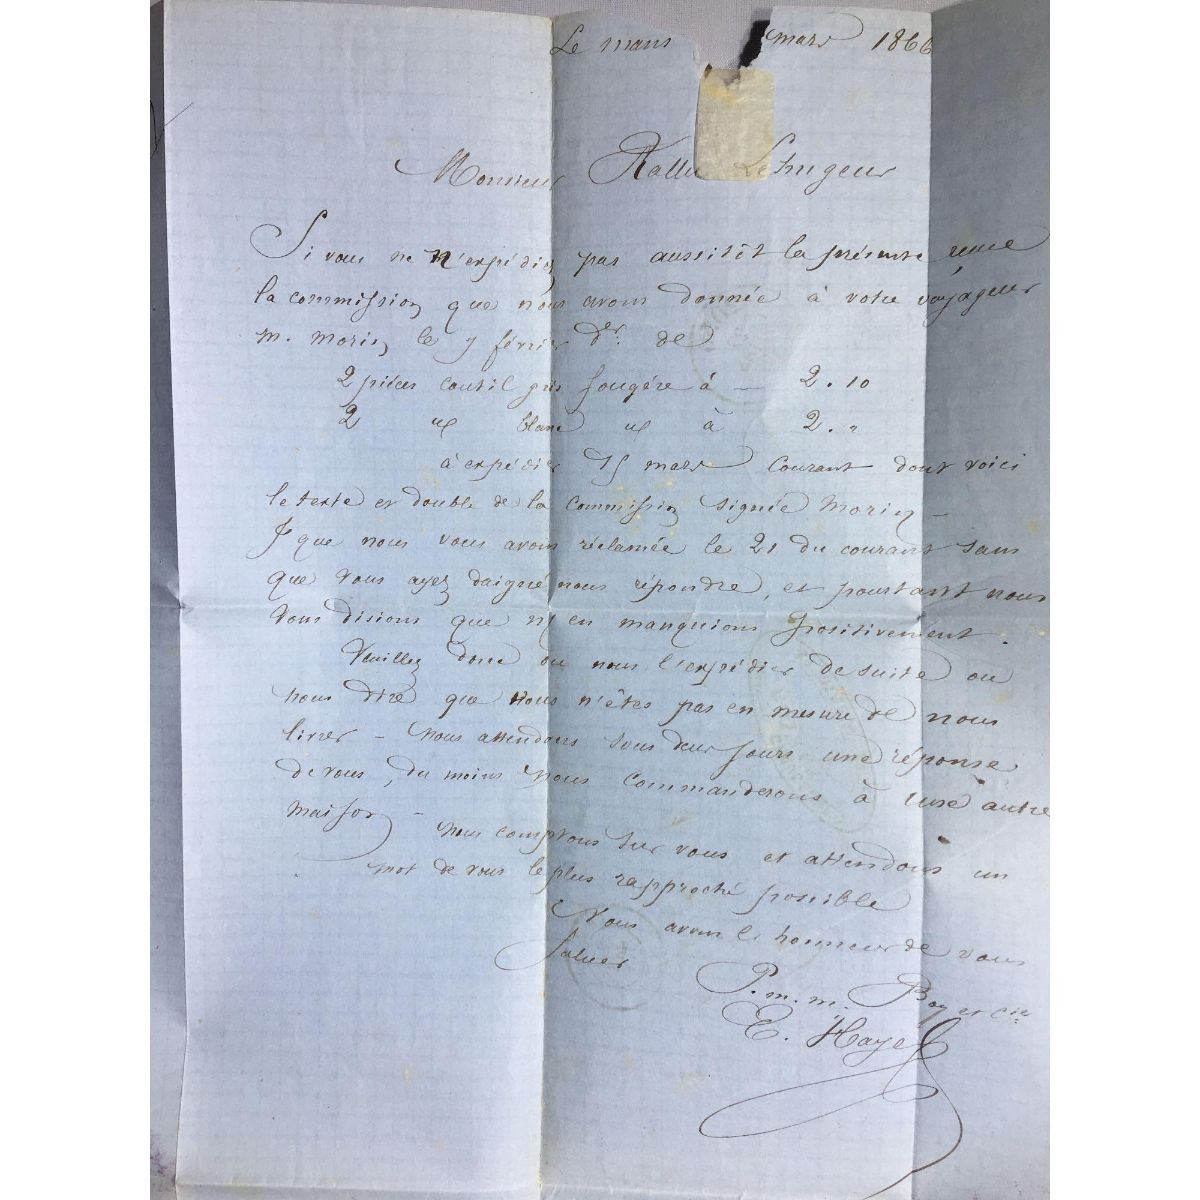 Le mans mars 1866
Monsieur Rallu Lehugeur
Si vous ne n'expédiez pas aussitôt la présente reçue
la commission que nous avons donnée à votre voyageur
m. Morin le 7 février der. de
2 pièces coutil gris fougére à — 2.10
2 " blanc " à 2."
à expédier 15 mars courant dont voici
le texte et double de la commission signée Morin —
que nous vous avons réclamée le 21 du courant sans
que vous ayez daigné nous répondre, et pourtant nous
vous disions que n/ en manquions positivement.
Veuillez donc ou nous l'expédier de suite ou
nous dire que vous n'êtes pas en mesure de nous
livrer — Nous attendons sous deux jours une réponse
de vous, du moins nous commanderons à une autre
maison — Nous comptons sur vous et attendons un
mot de vous le plus rapproché possible
Nous avons l'honneur de vous
saluer
P. m. m. Boy et Cie
E. Haye